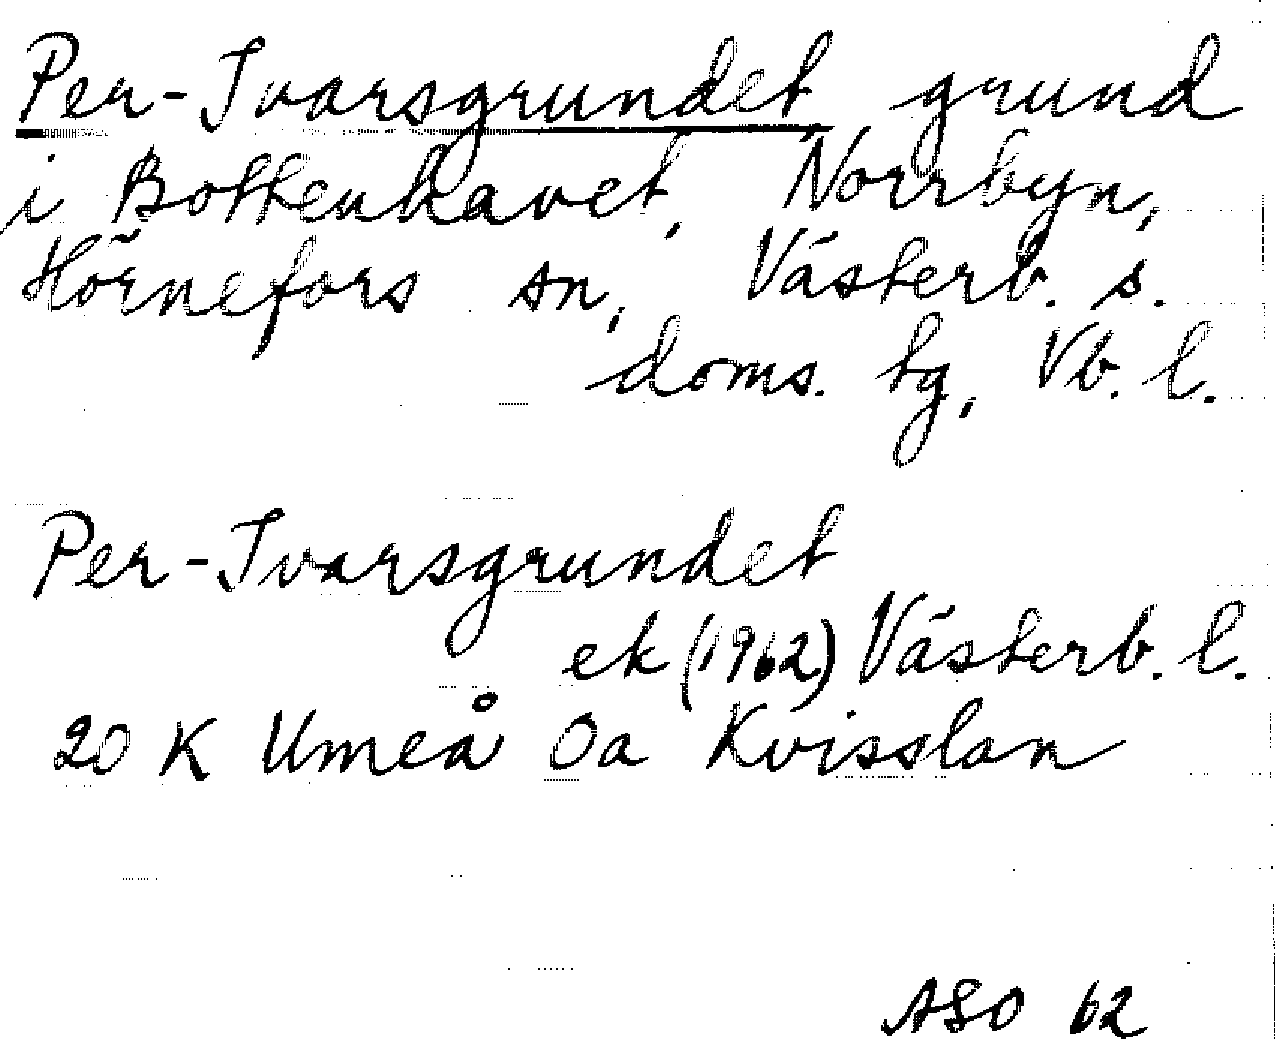 Per-Ivarsgrundet, grund
i Bottenhavet, Norrbyn,
Hörnefors sn, Västerb. s.
doms. tg, Vb. l.
Per-Ivarsgrundet
ek (1962) Västerb. l.
20 K Umeå 0a Kvisslan
ASO 62